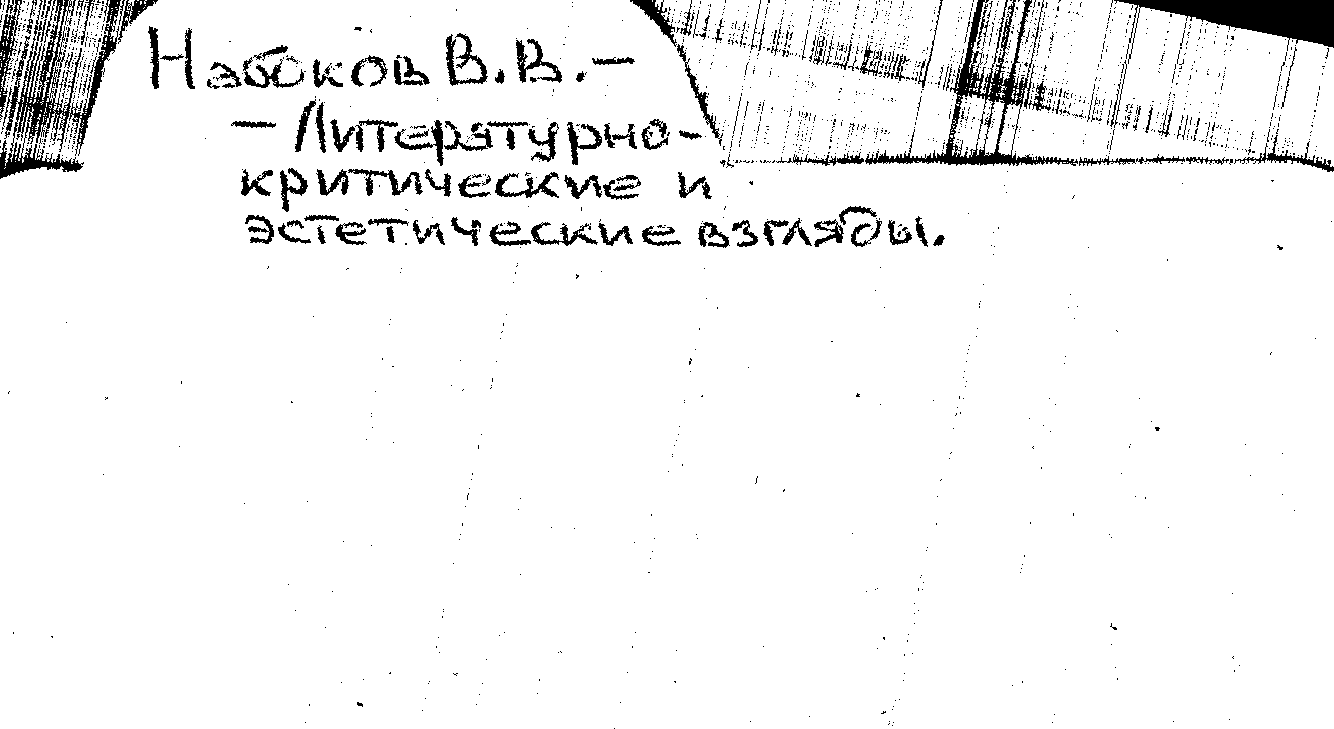 Набоков В.В. —
— Литературно-
критические и
эстетические взгляды.